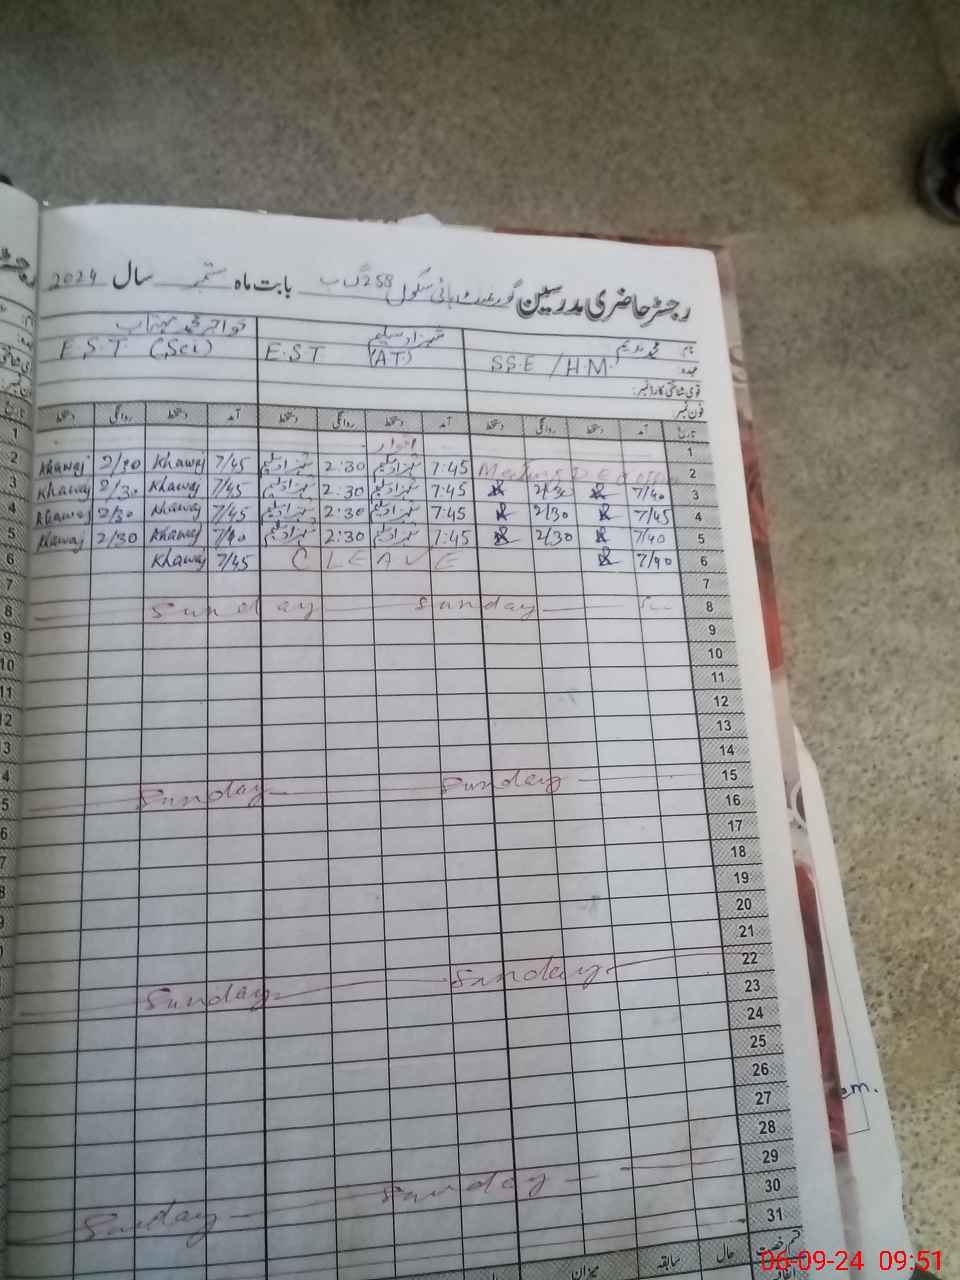 رجسٹر حاضری مدرسین گورنمنٹ ہائی سکول 258 گ ب بابت ماہ ستمبر سال 2024
نام: محمد ندیم شہزاد سلیم خواجہ محمد مہتاب
عہدہ: SSE / H.M. E.S.T (AT) E.S.T (Sci)
قومی شناختی کارڈ نمبر:
فون نمبر:
تاریخ آمد دستخط روانگی دستخط آمد دستخط روانگی دستخط آمد دستخط روانگی دستخط
1 اتوار
2 Meeting 7:45 شہزاد سلیم 2:30 شہزاد سلیم 7/45 Khawaj 2/30 Khawaj
3 7/40 2/30 7:45 شہزاد سلیم 2:30 شہزاد سلیم 7/45 Khawaj 2/30 Khawaj
4 7/45 2/30 7:45 شہزاد سلیم 2:30 شہزاد سلیم 7/45 Khawaj 2/30 Khawaj
5 7/40 2/30 7:45 شہزاد سلیم 2:30 شہزاد سلیم 7/40 Khawaj 2/30 Khawaj
6 7/40 C LEAVE 7/45 Khawaj
7
8 Sunday Sunday
9
10
11
12
13
14
15 Sunday Sunday
16
17
18
19
20
21
22 Sunday Sunday
23
24
25
26
27
28
29 Sunday Sunday
30
31
قسم رخصت حال سابقہ میزان
em.
06-09-24 09:51